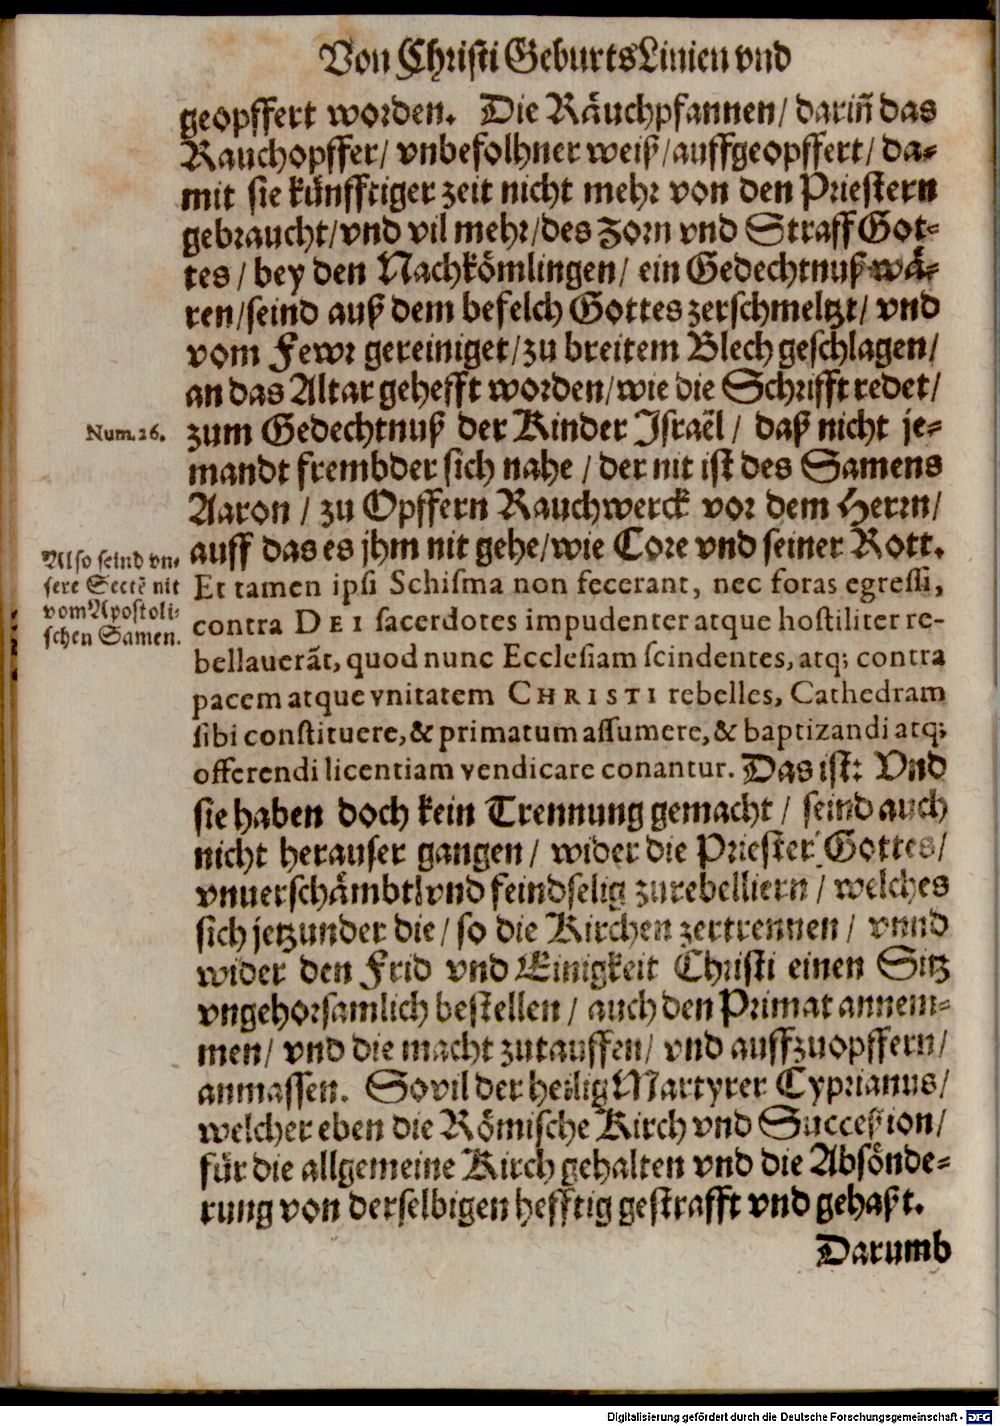 Von Christi Geburts Linien vnd
geopffert worden. Die Räuchpfannen/ dariñ das
Rauchopffer/ vnbefolhner weiß/ auffgeopffert/ da-
mit sie künfftiger zeit nicht mehr von den Priestern
gebraucht/ vnd vil mehr/ des Zorn vnd Straff Got-
tes/ bey den Nachkömlingen/ ein Gedechtnuß wä-
ren/ seind auß dem befelch Gottes zerschmeltzt/ vnd
vom Fewr gereiniget/ zu breitem Blech geschlagen/
an das Altar gehefft worden/ wie die Schrifft redet/
Num. 26.
zum Gedechtnuß der Kinder Israël/ daß nicht je-
mandt frembder sich nahe/ der nit ist des Samens
Aaron/ zu Opffern Rauchwerck vor dem Herrn/
auff das es jhm nit gehe/ wie Core vnd seiner Rott.
Also seind vn-
sere Sectē nit
vom Apostoli-
schen Samen.
Et tamen ipsi Schisma non fecerant, nec foras egressi,
contra DEI sacerdotes impudenter atque hostiliter re-
bellauerāt, quod nunc Ecclesiam scindentes, atq; contra
pacem atque vnitatem CHRISTI rebelles, Cathedram
sibi constituere, & primatum assumere, & baptizandi atq;
offerendi licentiam vendicare conantur. Das ist: Vnd
sie haben doch kein Trennung gemacht/ seind auch
nicht herauser gangen/ wider die Priester Gottes/
vnuerschämbt vnd feindselig zurebelliern/ welches
sich jetzunder die/ so die Kirchen zertrennen/ vnnd
wider den Frid vnd Einigkeit Christi einen Sitz
vngehorsamlich bestellen/ auch den Primat annem-
men/ vnd die macht zutauffen/ vnd auffzuopffern/
anmassen. Sovil der heilig Martyrer Cyprianus/
welcher eben die Römische Kirch vnd Succeßion/
für die allgemeine Kirch gehalten vnd die Absönde-
rung von derselbigen hefftig gestrafft vnd gehaßt.
Darumb
Digitalisierung gefördert durch die Deutsche Forschungsgemeinschaft - DFG